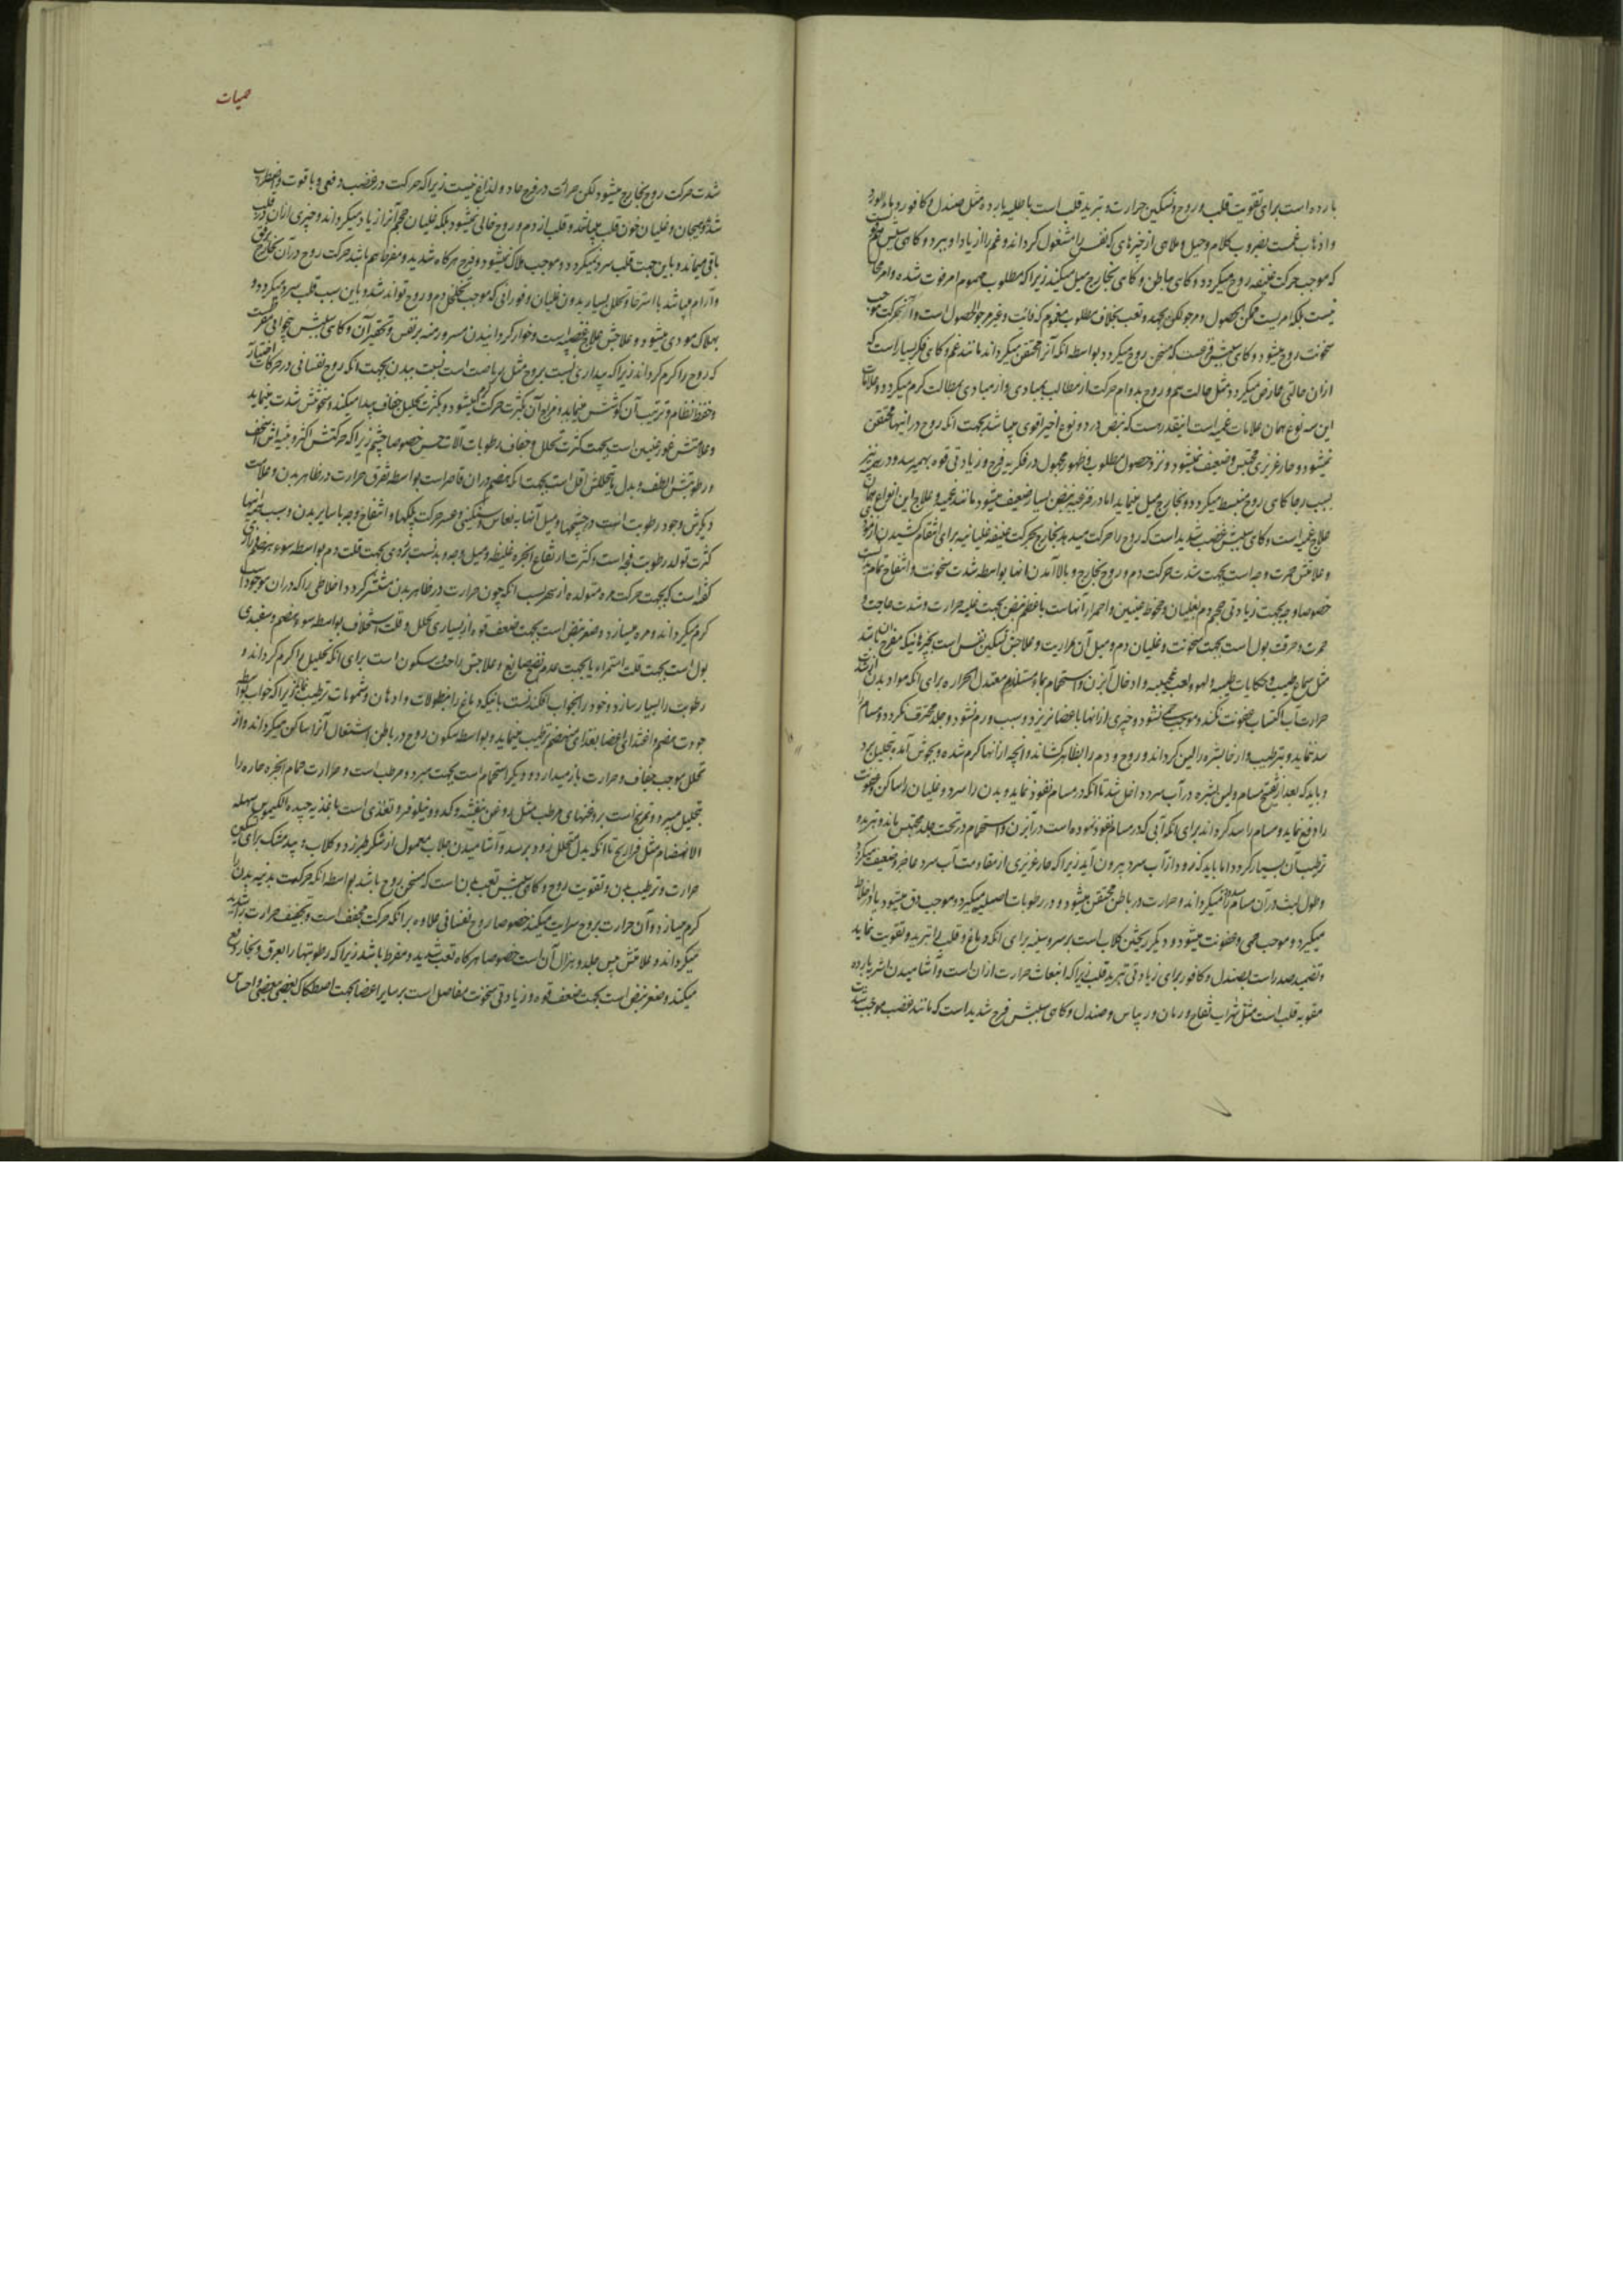 بارده است برای تقویت قلب و روح و تسکین حرارت و تبرید قلب است باطلیه بارده مثل صندل و کافور و باء الورد
و اذهاب غمست بضروب کلام و حیل و ملاهی از چیزهای که نفس را مشغول کرداند و غم را از یاد او ببرد و کاهی سببش
که موجب حرکت عنیفه روح میکردد و کاهی بباطن و کاهی بخارج میل میکند زیرا که مطلوب مهموم امر فوت شده و امر محال
نیست بلکه امریست ممکن الحصول و مرجو لکن بجهد و تعب بخلاف مطلوب مغموم که فائت و غیر مرجو الحصول است و از حرکت موجب
سخونت روح میشود و کاهی سببش فزعست که مسخن روح میکردد بواسطه انکه آنرا محتقن میکرداند مانند غم و کاهی فکر بسیار است که
ازان حالتی عارض میکردد مثل حالت هم و روح بدوام حرکت از مطالب بمبادی و از مبادی بمطالب کرم میکردد و علامات
این سه نوع همان علامات غمیه است اینقدر هست که نبض در دو نوع اخیر اقوی میباشد بجهت انکه روح در اینها محتقن
نمیشود و حار غریزی محتبس و ضعیف نمیشود و نزد حصول مطلوب و ظهور مجهول در فکریه فرح و زیادتی قوه بهم میرسد و در نیز
بسبب رجا کاهی روح منبسط میکردد و بخارج میل مینماید اما در فزعیه نبض بسیار ضعیف میشود مانند غمیه و علاج این انواع همان
علاج غمیه است و کاهی سببش غضب شدید است که روح را حرکت میدهد بخارج بحرکت عنیفه غلیانیه برای انتقام کشیدن از موذی
و علامتش حمرت وجه است بجهت شدت حرکت دم و روح بخارج و بالا آمدن انها بواسطه شدت سخونت و انتفاخ تمام بدن
خصوصا وجه بجهت زیادتی حجم دم بغلیان و جحوظ عینین و احمرار آنهاست با عظم نبض بجهت غلبه حرارت و شدت حاجت و
حمرت و حرقت بول است بجهت سخونت و غلیان دم و میل آن بمراریت و علاجش تسکین نفس است بچیزهائیکه مفرح باشد
مثل سماع طیب و حکایات طیبه و لهو و لعب عجیبه و ادخال آبزن و استحمام بماء معتدل الحراره برای انکه مواد بدن از
حرارت آب اکتساب عفونت نکند و موجب نشود و چیزی ازانها باعضا نریزد و سبب ورم نشود و جلد محترق نکردد و مسام را
سد ننماید و بترطیب و ارخا بشره را لین کرداند و روح و دم را بظاهر کشاند و انچه ازانها کرم شده و بجوش آمده بتحلیل برد
و باید که بعد از تفتیح مسام و لین بشره در آب سرد داخل شد تا انکه در مسام نفوذ نماید و بدن را سرد و غلیان را ساکن و عفونت
را دفع نماید و مسام را سد کرداند برای انکه آبی که در مسام نفوذ نموده است در آبزن و استحمام در تحت جلد محتبس ماند و تبرید و
ترطیب آن بسیار کردد اما باید که زود از آب سرد بیرون آید زیرا که حار غریزی از مقاومت آب سرد عاجز و ضعیف میکردد
و طول لبث در آن مسام را میکرداند و حرارت در باطن محتقن میشود و در رطوبات اصلیه میکیرد و موجب دق میشود یا در اخلاط
میکیرد و موجب حمی و عفونت میشود و دیکر ریختن کلاب است بر سر و سینه برای انکه دماغ و قلب را تبرید و تقویت نماید
و تضمید صدر است بصندل و کافور برای زیادتی تبرید قلب زیرا که انبعاث حرارت ازان است و آشامیدن اشربه بارده
مقویه قلب است مثل شراب تفاح و رمان و ریباس و صندل و کاهی سببش فرح شدید است که مانند غضب موجب شدت
حمیات
شدت حرکت روح بخارج میشود لکن حرارت در فرح حاد و لذاع نیست زیرا که حرکت در غضب دفعی و باقوت و اضطراب
شدید و هیجان و غلیان خون قلب میباشد و قلب از دم و روح خالی نمیشود بلکه غلیان حجم آنرا زیاد میکرداند و چیزی ازان در قلب
باقی میماند و باین جهت قلب سرد نمیکردد و موجب هلاک نمیشود و فرح هرکاه شدید و مفرط هم باشد حرکت روح در آن بخارج برفق
و آرام میباشد با استرخا و تحلل بسیار بدون غلیان و فورانی که موجب تخلخل دم و روح تواند شد و باین سبب قلب سرد میکردد و
بهلاک مودی میشود و علاجش علاج غضبیه است و خوار کردانیدن مسرور منه بر نفس و تحقیر آن و کاهی سببش بیخوابی مفرطست
که روح را کرم کرداند زیرا که بیداری نسبت بروح مثل ریاضت است نسبت ببدن بجهت انکه روح نفسانی در حرکات اختیاری
و حفظ نظام و ترتیب آن کوشش مینماید و مزاج آن بکثرت حرکت کرم میشود و بکثرت تحلیل جفاف پیدا میکند و سخونتش شدت مینماید
و علامتش غور عینین است بجهت کثرت تحلل و جفاف رطوبات آلات حس خصوصا چشم زیرا که حرکتش اکثر و بنیه اش اسخف
و رطوبتش الطف و بدل ما یتحللش اقل است بجهت انکه هضم دران قاصر است بواسطه تفرق حرارت در ظاهر بدن و علامت
دیکرش وجود رطوبت است در چشمها و میل آنها به نعاس و سنکینی و عسر حرکت پلکها و انتفاخ وجه با سایر بدن و سبب
کثرت تولد رطوبت فجه است و کثرت ارتفاع ابخره غلیظه و میل وجه و بدنست بزردی بجهت قلت دم بواسطه سوء هضم
کفته است که بجهت حرکت مره متولده از سهر است انکه چون حرارت در ظاهر بدن منتشر کردد اخلاطی را که دران موجود است
کرم میکرداند و مره میسازد و صغر نبض است بجهت ضعف قوه از بسیاری تحلل و قلت استخلاف بواسطه سوء هضم و سفیدی
بول است بجهت قلت استمراء یا بجهت عدم نضج صابغ و علاجش راحت و سکون است برای انکه تحلیل را کم کرداند و
رطوبت را بسیار سازد و خود را بخواب افکندنست بانیکه دماغ را بنطولات و ادهان و شمومات ترطیب نمایند زیرا که خواب بواسطه
جودت هضم و اغتذای اعضا بغذای منهضم ترطیب مینماید و بواسطه سکون روح در باطن اشتعال آنرا ساکن میکرداند و از
تحلل موجب جفاف و حرارت باز میدارد و دیکر استحمام است بجهت مبرد و مرطب است و حرارت حمام ابخره حاره را
بتحلیل میبرد و تمریخ است بروغنهای مرطب مثل روغن بنفشه و کدو و نیلوفر و تغذی است باغذیه جیده الکیموس سهله
الانهضام مثل فراریج تا انکه بدل متحلل زود برسد و آشامیدن جلاب معمول از شکر طبرزد و کلاب و بید مشک برای تسکین
حرارت و ترطیب بدن و تقویت روح و کاهی سببش تعب بدن است که مسخن روح باشد بواسطه انکه حرکت بدنیه بدن را
کرم میسازد و آن حرارت بروح سرایت میکند خصوصا روح نفسانی علاوه بر انکه حرکت مجفف است و تجفیف حرارت را شدید
میکرداند و علامتش یبس جلد و هزال آن است خصوصا هرکاه تعب شدید و مفرط باشد زیرا که رطوبتها را بعرق و بخار دفع
میکند و صغر نبض است بجهت ضعف قوه و زیادتی سخونت مفاصل است بر سایر اعضا بجهت اصطکاک بعضی ببعضی و احساس